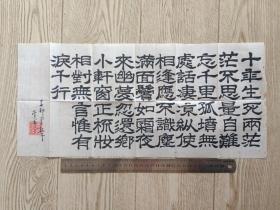 十年生死兩茫
茫不思量自難
忘千里孤墳無
處話凄涼縱使
相逢應不識塵
滿面鬢如霜夜
來幽夢忽還鄉
小軒窗正梳妝
相對無言惟有
淚千行